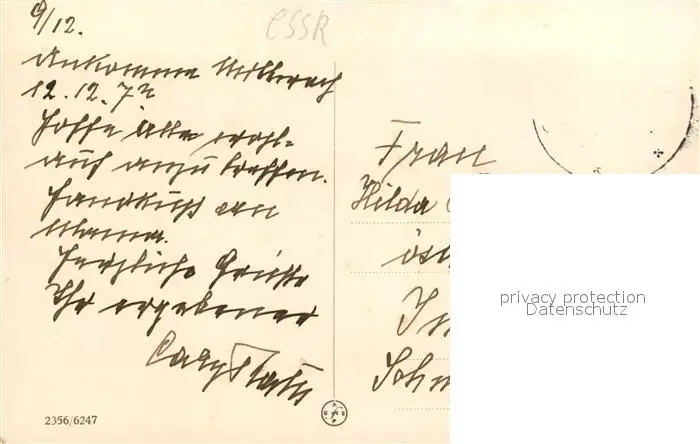 9/12.
ČSSR
Ankomme Mittwoch
12.12.72
Hoffe alle wohl-
auf anzutreffen.
Handkuß an
Mama.
Herzliche Grüße
Ihr ergebener
Frau
Hilda
öst
Schn
privacy protection
Datenschutz
2356/6247